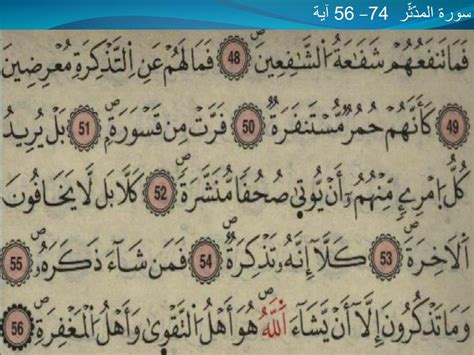 سورة المدّثّر 74– 56 آية
فَمَا تَنفَعُهُمْ شَفَٰعَةُ الشَّٰفِعِينَ 48 فَمَا لَهُمْ عَنِ التَّذْكِرَةِ مُعْرِضِينَ
49 كَأَنَّهُمْ حُمُرٌ مُّسْتَنفَرَةٌ 50 فَرَّتْ مِن قَسْوَرَةٍ 51 بَلْ يُرِيدُ
كُلُّ اُمْرِےٕٖ مِّنْهُمُۥٓ أَنْ يُّوتَىٰ صُحُفاً مُّنَشَّرَةً 52 كَلَّا بَل لَّا يَخَافُونَ
الَاخِرَةَ 53 كَلَّآ إِنَّهُۥ تَذْكِرَةٌ 54 فَمَن شَآءَ ذَكَرَهُۥ 55
وَمَا تَذْكُرُونَ إِلَّآ أَنْ يَّشَآءَ اَللَّهُ هُوَ أَهْلُ اُلتَّقْوٜىٰ وَأَهْلُ اُلْمَغْفِرَةِ 56